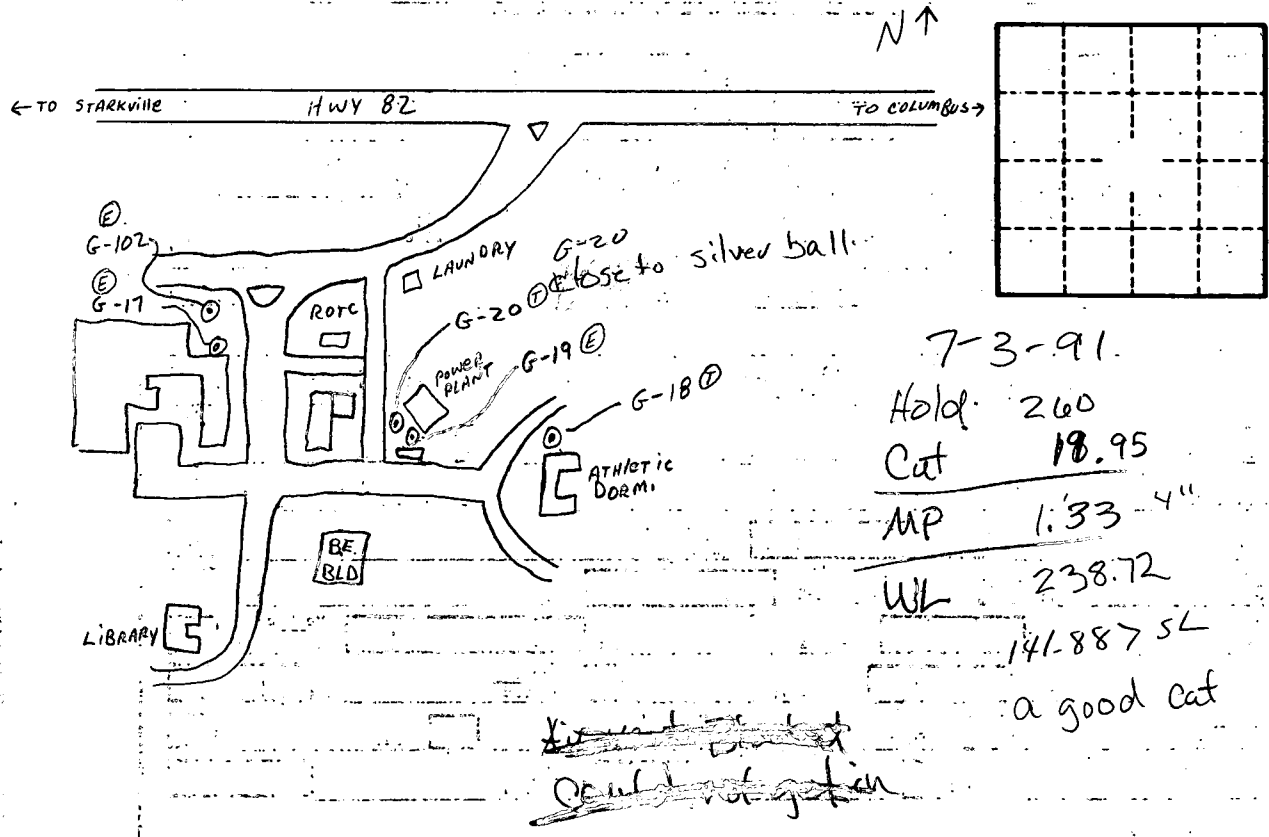 N ↑
← TO STARKVILLE HWY 82 TO COLUMBUS →
Ⓔ
G-102
Ⓔ
G-17
LAUNDRY
G-20
close to silver ball.
ROTC
G-20 Ⓣ
G-19 Ⓔ
POWER
PLANT
G-18 Ⓣ
ATHLETIC
DORM.
BE.
BLD
LIBRARY
7-3-91
Hold 260
Cut 19.95
MP 1.33 4"
WL 238.72
141-887 SL
a good cut